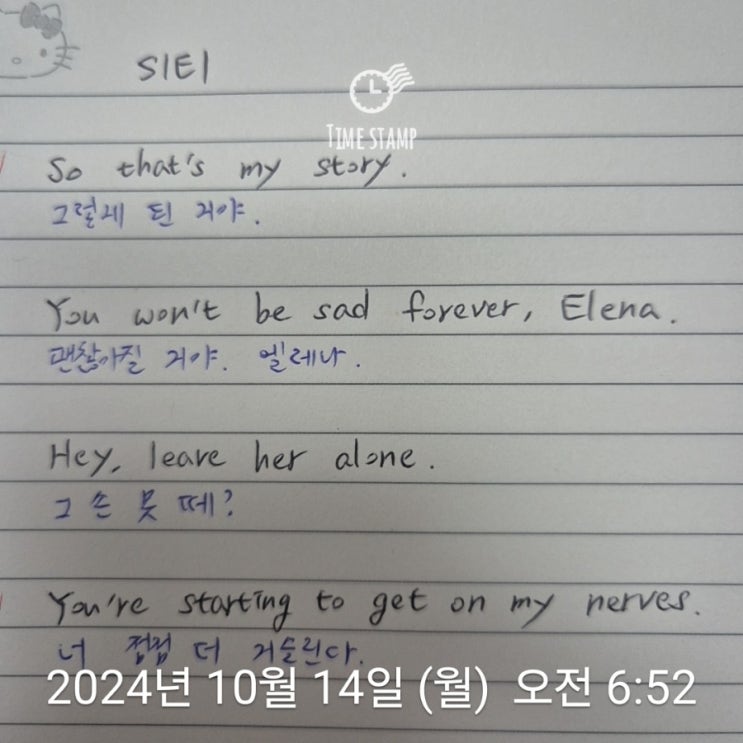 S1E1
TIME STAMP
So that's my story.
그렇게 된 거야.
You won't be sad forever, Elena.
괜찮아질 거야. 엘레나.
Hey, leave her alone.
그 손 못 떼?
You're starting to get on my nerves.
너 점점 더 거슬린다.
2024년 10월 14일 (월) 오전 6:52